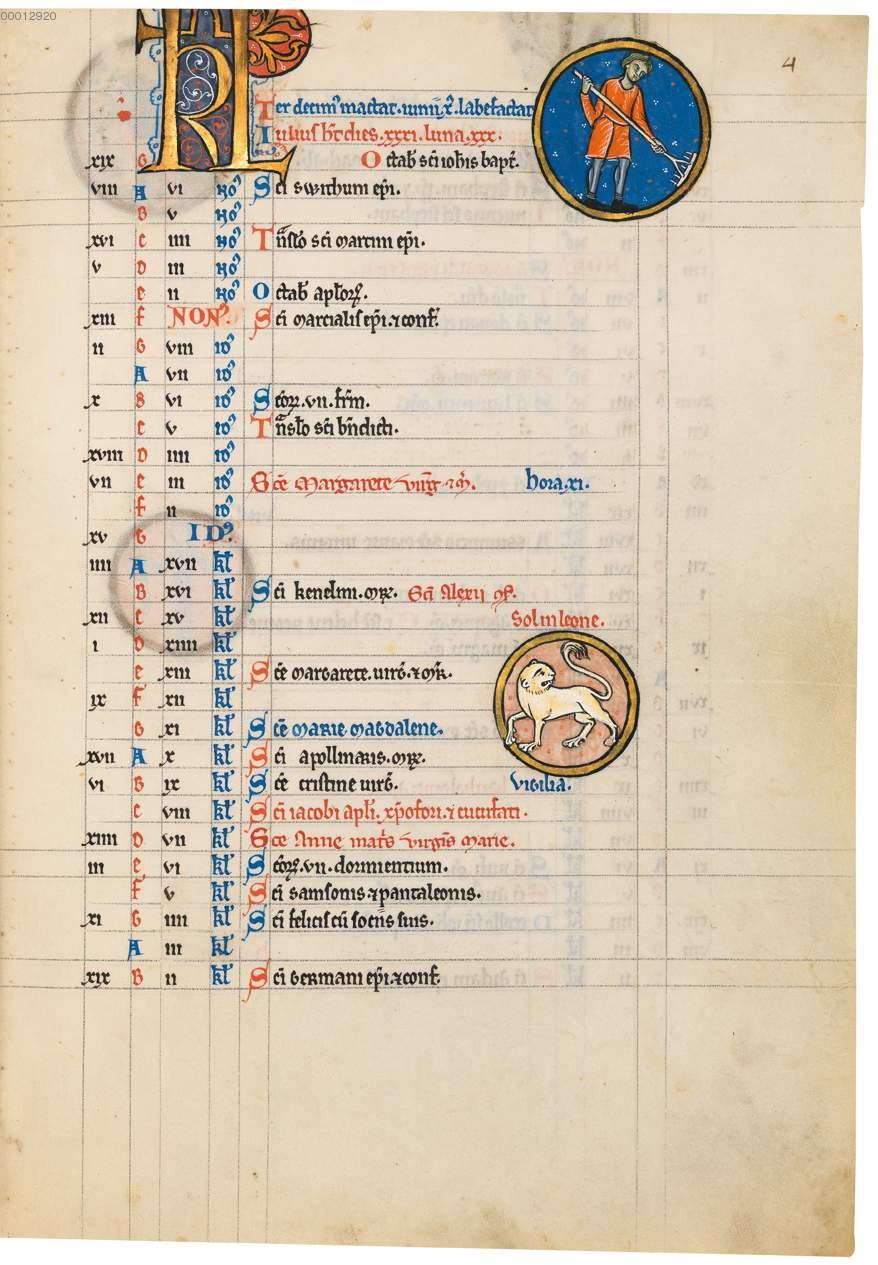 00012920
4
KL
Ter decim⁹ mactat. iunii. x. labefactat
Iulius hт dies. xxxi. luna. xxx.
xix G Octab̄ sc̄i ioh̄is bapt̄.
viii A vi no⁹ Sc̄i swithuni ep̄i.
B v no⁹
xvi c iiii no⁹ Tn̄slō sc̄i martini ep̄i.
v D iii no⁹
e ii no⁹ Octab̄ apl̄oꝝ.
xiii f NON⁹. Sc̄i marcialis ep̄i. ⁊ conf̄.
ii G viii id⁹
A vii id⁹
x B vi id⁹ Sc̄oꝝ. vii. fr̄m.
c v id⁹ Tn̄slō sc̄i bn̄dicti.
xviii D iiii id⁹
vii e iii id⁹ Sc̄e Margarete virḡ ⁊ m̄. hora. xi.
f ii id⁹
xv G ID⁹.
iiii A xvii kl̄
B xvi kl̄ Sc̄i kenelmi. mr̄. Sc̄i Alexii c̄f.
xii c xv kl̄ Sol in leone.
i D xiiii kl̄
e xiii kl̄ Sc̄e margarete. uirḡ. ⁊ mr̄.
ix f xii kl̄
G xi kl̄ Sc̄e marie magdalene.
xvii A x kl̄ Sc̄i apollinaris. mr̄.
vi B ix kl̄ Sc̄e cristine uirḡ. Vigilia.
c viii kl̄ Sc̄i iacobi apl̄i. xp̄ofori. ⁊ cucufati.
xiiii D vii kl̄ Sc̄e Anne mat̄s virgīs marie.
iii e vi kl̄ Sc̄oꝝ. vii. dormientium.
f v kl̄ Sc̄i samsonis ⁊ pantaleonis.
xi G iiii kl̄ Sc̄i felicis cū sociis suis.
A iii kl̄
xix B ii kl̄ Sc̄i germani ep̄i. ⁊ conf̄.